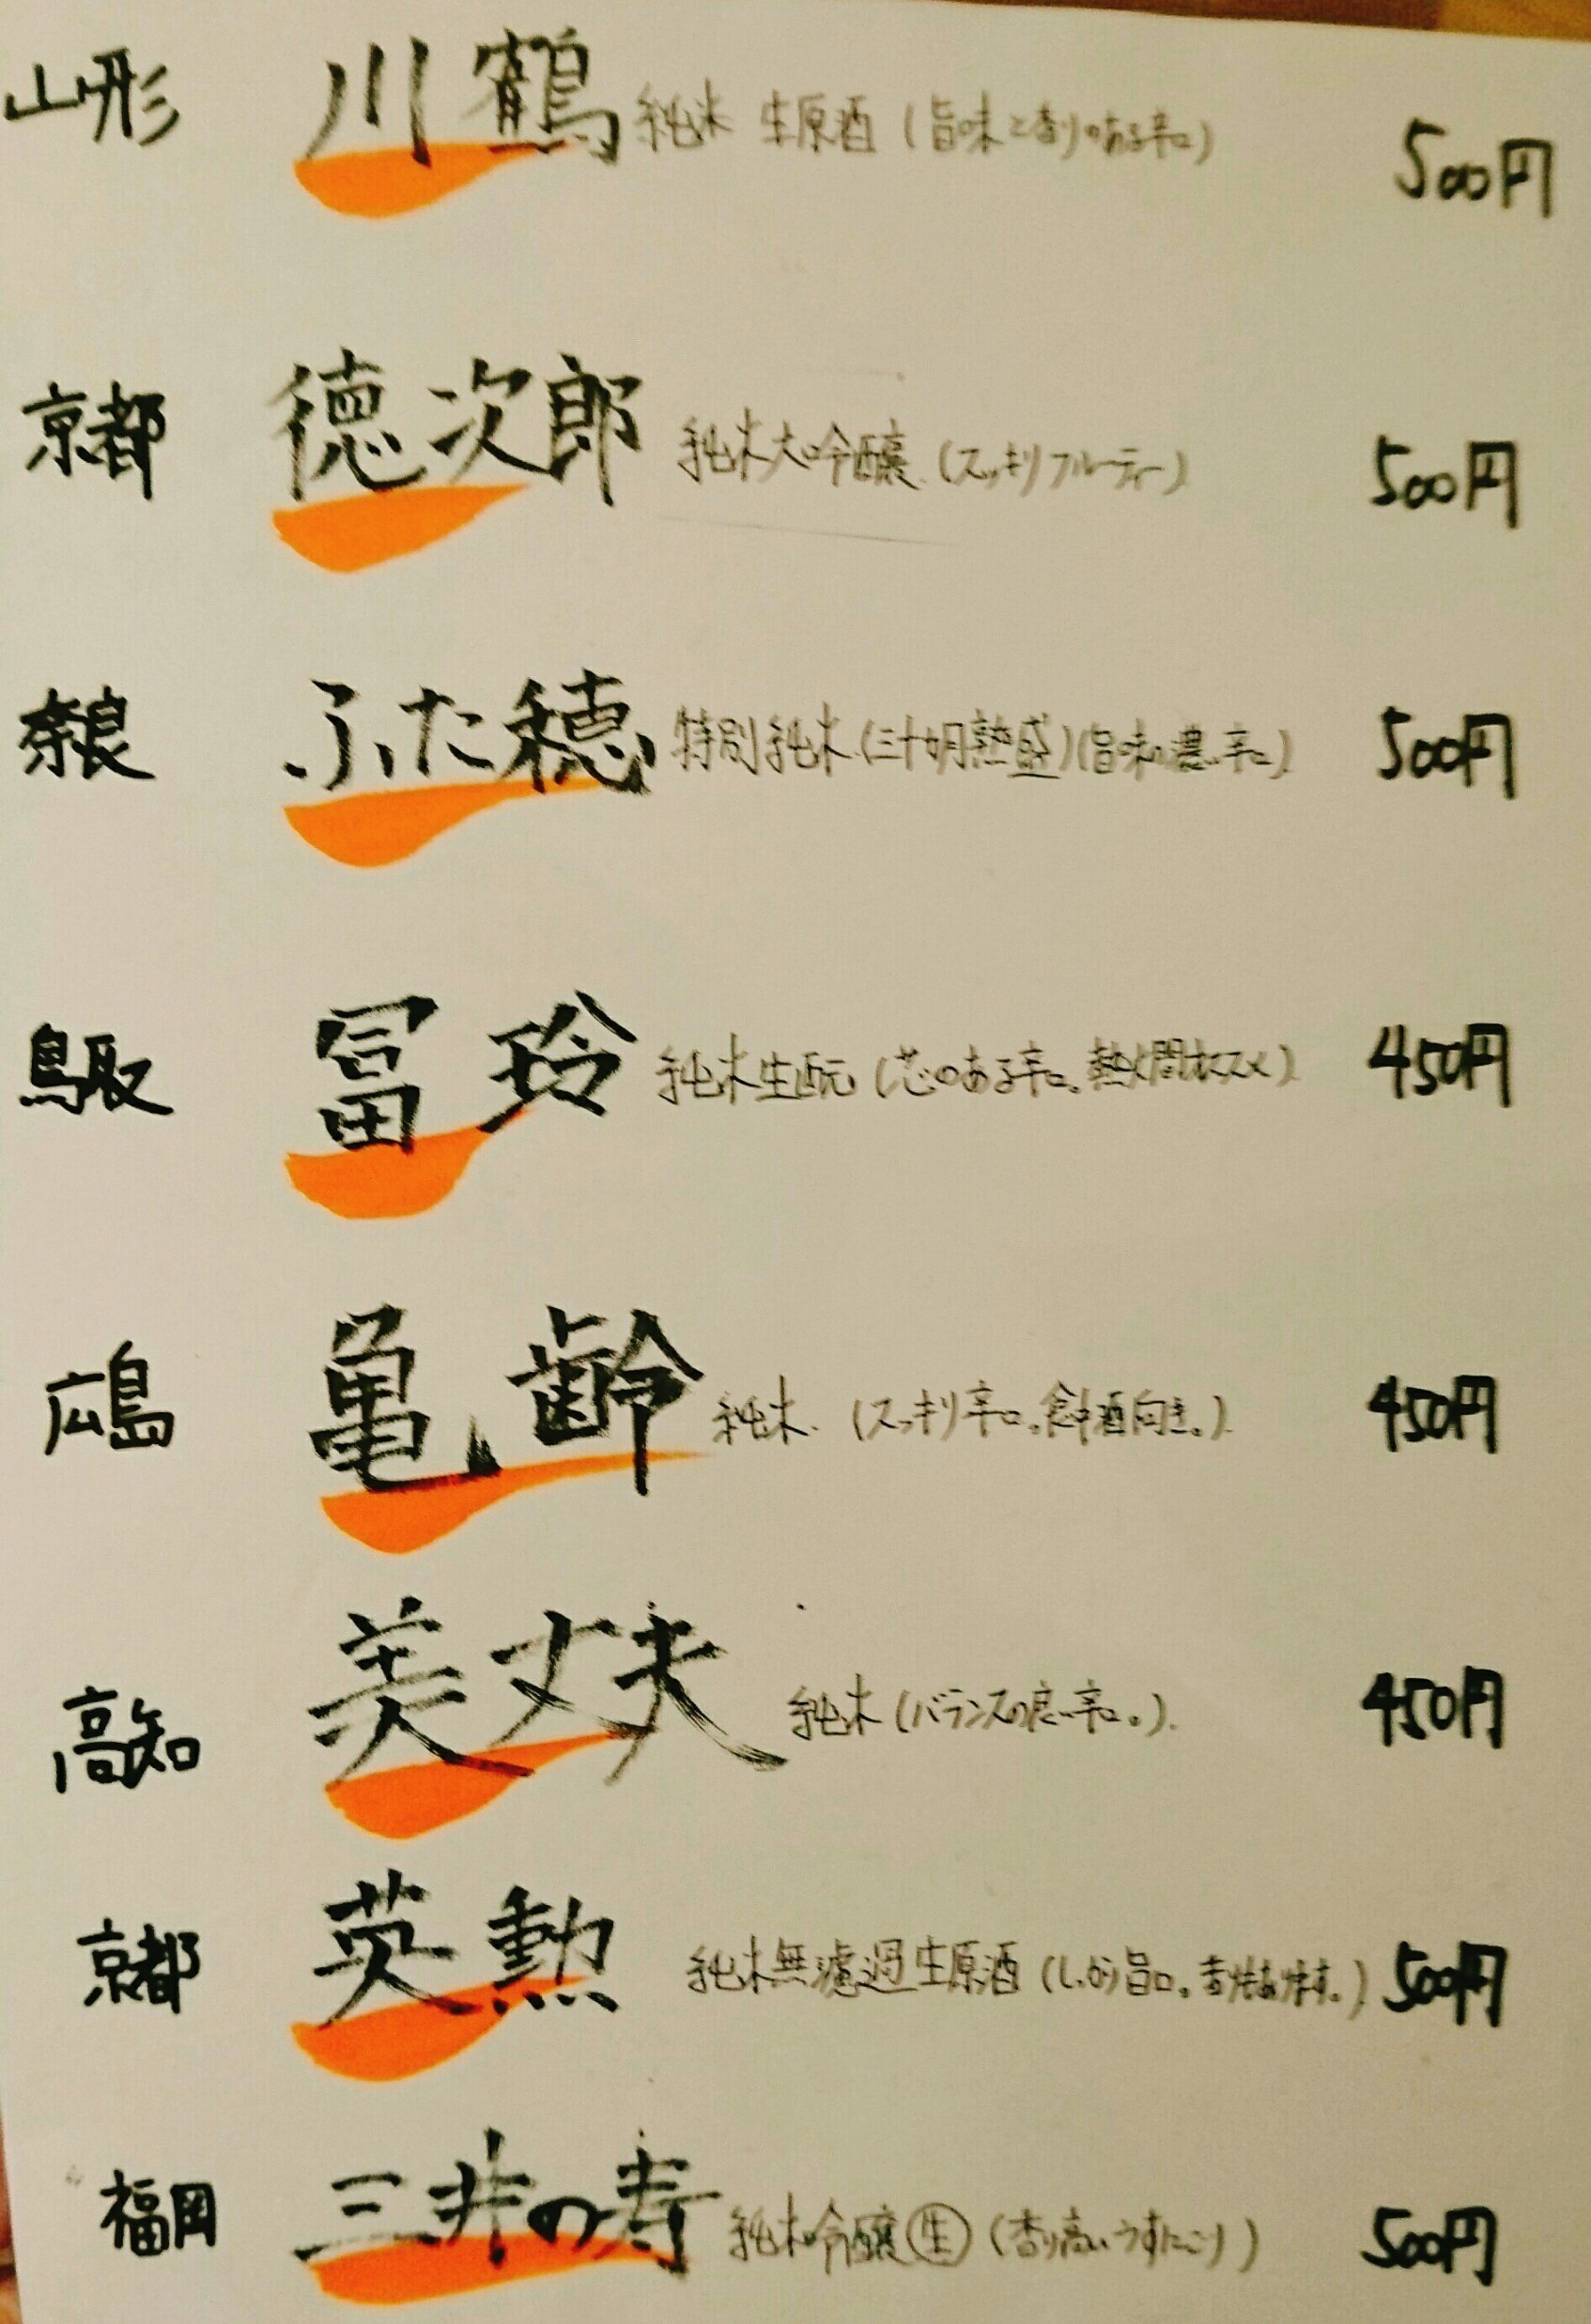 山形 川鶴 純米 生原酒 (旨味と香りのある辛口) 500円
京都 徳次郎 純米大吟醸 (スッキリフルーティー) 500円
奈良 ふた穂 特別純米 (三十ヶ月熟盛) (旨味の濃い辛口) 500円
鳥取 冨玲 純米生酛 (芯のある辛口。熱燗オススメ) 450円
広島 亀齢 純米 (スッキリ辛口。食中酒向き。) 450円
高知 美丈夫 純米 (バランスの良い辛口。) 450円
京都 英勲 純米無濾過生原酒 (しっかり旨口。) 500円
福岡 三井の寿 純米吟醸 生 (香り高いうすにごり) 500円